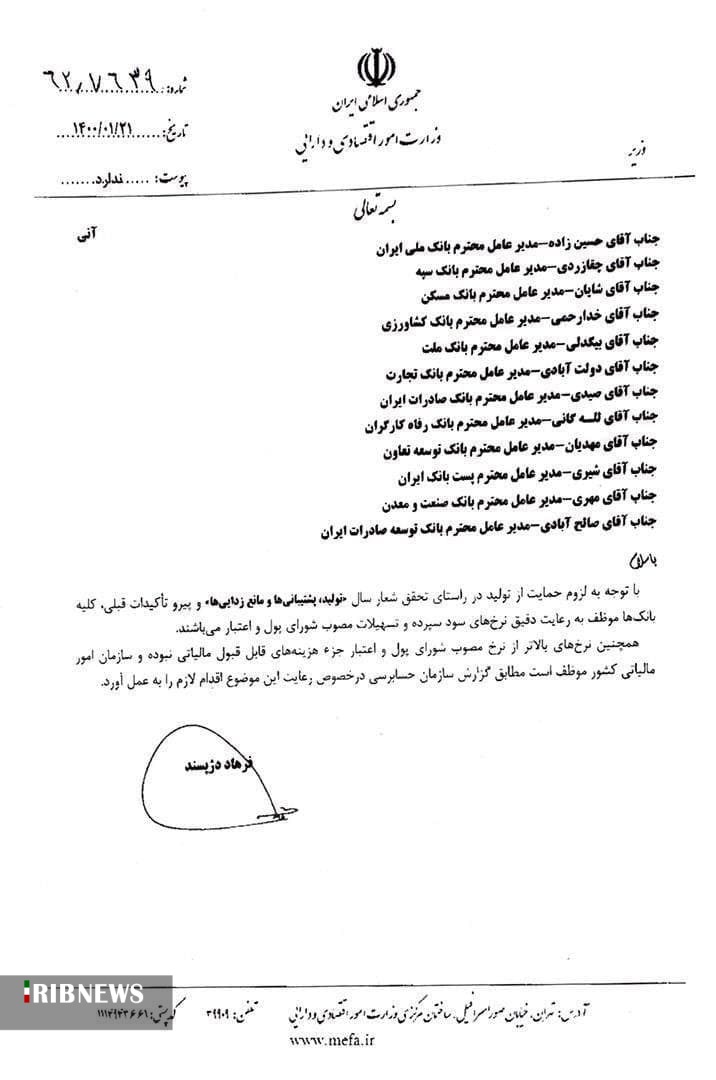 جمهوری اسلامی ایران
وزارت امور اقتصادی و دارایی
وزیر
شماره:
تاریخ: ۱۴۰۰/۰۱/۲۱
پیوست: ندارد
بسمه تعالی
آنی
جناب آقای حسین زاده–مدیر عامل محترم بانک ملی ایران
جناب آقای چقازردی–مدیر عامل محترم بانک سپه
جناب آقای شایان–مدیر عامل محترم بانک مسکن
جناب آقای خدارحمی–مدیر عامل محترم بانک کشاورزی
جناب آقای بیگدلی–مدیر عامل محترم بانک ملت
جناب آقای دولت آبادی–مدیر عامل محترم بانک تجارت
جناب آقای صیدی–مدیر عامل محترم بانک صادرات ایران
جناب آقای لله گانی–مدیر عامل محترم بانک رفاه کارگران
جناب آقای مهدیان–مدیر عامل محترم بانک توسعه تعاون
جناب آقای شیری–مدیر عامل محترم پست بانک ایران
جناب آقای مهری–مدیر عامل محترم بانک صنعت و معدن
جناب آقای صالح آبادی–مدیر عامل محترم بانک توسعه صادرات ایران
باسلام
با توجه به لزوم حمایت از تولید در راستای تحقق شعار سال «تولید، پشتیبانی‌ها و مانع زدایی‌ها» و پیرو تأکیدات قبلی، کلیه
بانک‌ها موظف به رعایت دقیق نرخ‌های سود سپرده و تسهیلات مصوب شورای پول و اعتبار می‌باشند.
همچنین نرخ‌های بالاتر از نرخ مصوب شورای پول و اعتبار جزء هزینه‌های قابل قبول مالیاتی نبوده و سازمان امور
مالیاتی کشور موظف است مطابق گزارش سازمان حسابرسی درخصوص رعایت این موضوع اقدام لازم را به عمل آورد.
فرهاد دژپسند
آدرس: تهران، خیابان صوراسرافیل، ساختمان مرکزی وزارت امور اقتصادی و دارایی تلفن: ۳۹۹۰۹ کدپستی: ۱۱۱۴۹۴۳۶۶۱
www.mefa.ir
IRIBNEWS